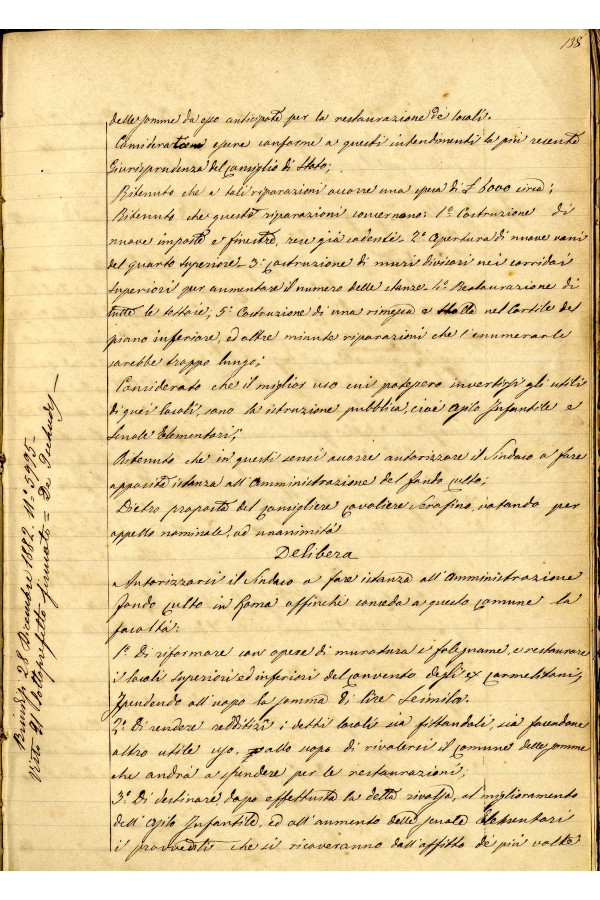 138
delle somme da esso anticipate per la restaurazione de' locali.
Considerato essere conforme a questi intendimenti la più recente
Giurisprudenza del Consiglio di Stato;
Ritenuto che a tali riparazioni occorre una spesa di £ 6000 circa;
Ritenuto che queste riparazioni concernano: 1.° Costruzione di
nuove imposte e finestre, rese già cadenti - 2.° Apertura di nuove vani
del quarto superiore - 3.° Costruzione di muri divisori nei corridoi
superiori per aumentare il numero delle stanze - 4.° Restaurazione di
tutte le tettoie; 5.° Costruzione di una rimessa e stalla nel Cortile del
piano inferiore, ed altre minute riparazioni che l'enumerarle
sarebbe troppo lungo;
Considerato che il miglior uso cui potessero invertirsi gli utili
di quei locali, sono la istruzione pubblica, cioè Asilo Infantile e
Scuole Elementari;
Ritenuto che in questi sensi occorre autorizzare il Sindaco a fare
apposita istanza all'Amministrazione del fondo Culto;
Dietro proposta del Consigliere Cavaliere Serafino, votando per
appello nominale, ad unanimità
Delibera
Autorizzarsi il Sindaco a fare istanza all'Amministrazione
fondo Culto in Roma affinchè conceda a questo Comune la
facoltà:
1.° Di riformare con opere di muratura e falegname, e restaurare
i locali superiori ed inferiori del Convento degli ex Carmelitani,
spendendo all'uopo la somma di lire Seimila.
2.° Di rendere redditizi i detti locali sia fittandoli, sia facendone
altro utile uso, allo uopo di rivalersi il Comune delle somme
che andrà a spendere per le restaurazioni;
3.° Di destinare, dopo effettuita la detta rivalsa, al miglioramento
dell'Asilo Infantile, ed all'aumento delle scuole Elementari
i proventi che si ricaveranno dall'affitto de' più volte
Brindisi 28 Dicembre 1882. N.° 5995 -
Visto Il Sottoprefetto firmato =